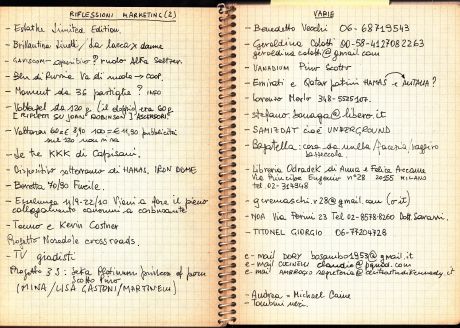 RIFLESSIONI MARKETING (2)
- Estathe Limited Edition.
- Brillantina Linetti / da lacca x dame
- GAVISCON - aperitivo? ruolo Alka Seltzer
- Blu di Russia. Va di nuolo → COOP.
- Moment da 36 pastiglie? INFO
- Voltafel da 120 g (il doppio) era 60 g
[RIPETERE SU JOHN "ROBINSON" "ASCENSORI"
- Voltaren 60 = € 8,90 100 = € 11,90 pubblicità
sul 120 non una
- Le tre KKK di Capisani.
- Dispositivo sotterraneo di HAMAS. IRON DOME.
- Beretta 70/90 Fucile.
- Esselunga 11/9-22/10 Vieni a fare il pieno
collegamento cannoni a carburante
- Tacno e Kevin Costner
Progetto crossroads.
- TV giadisti
Progetto 3 S: Seka Platinum princess of porn
Scotto Pino
(MINA / LISA GASTONI / MARTINELLI)
VARIE
- Benedetto Vecchi 06-68719543
- Geraldina Colotti 00-58-4127082263
geraldina.colotti@gmail.com
- VANADIUM Pino Scotto
- Emirati e Qatar patini HAMAS e ALITALIA?
- Lorenzo Merlo 348-5525107.
- stefano.bonaga@libero.it
- SAMIZDAT cioè UNDERGROUND
- Bagatella: cosa da nulla / facezia / leggero
bazzecola.
- Libreria Odradek di Anna e Felice Accame
Via Principe Eugenio n° 28 20155 MILANO
tel 02-314948
- gremaschi.r28@gmail.com (o .it)
- NDA Via Pernini 23 Tel 02-8578.8260 Dott. Saravini.
- TITONEL GIORGIO 06-77204728
e-mail DORY bosambo1953@gmail.it
e-mail CUCINELLI claudio@pqmod.com
e-mail AMBROGIO segreteria@centrostudikennedy.it
- Andrea = Michael Caine
- Tombini neri.